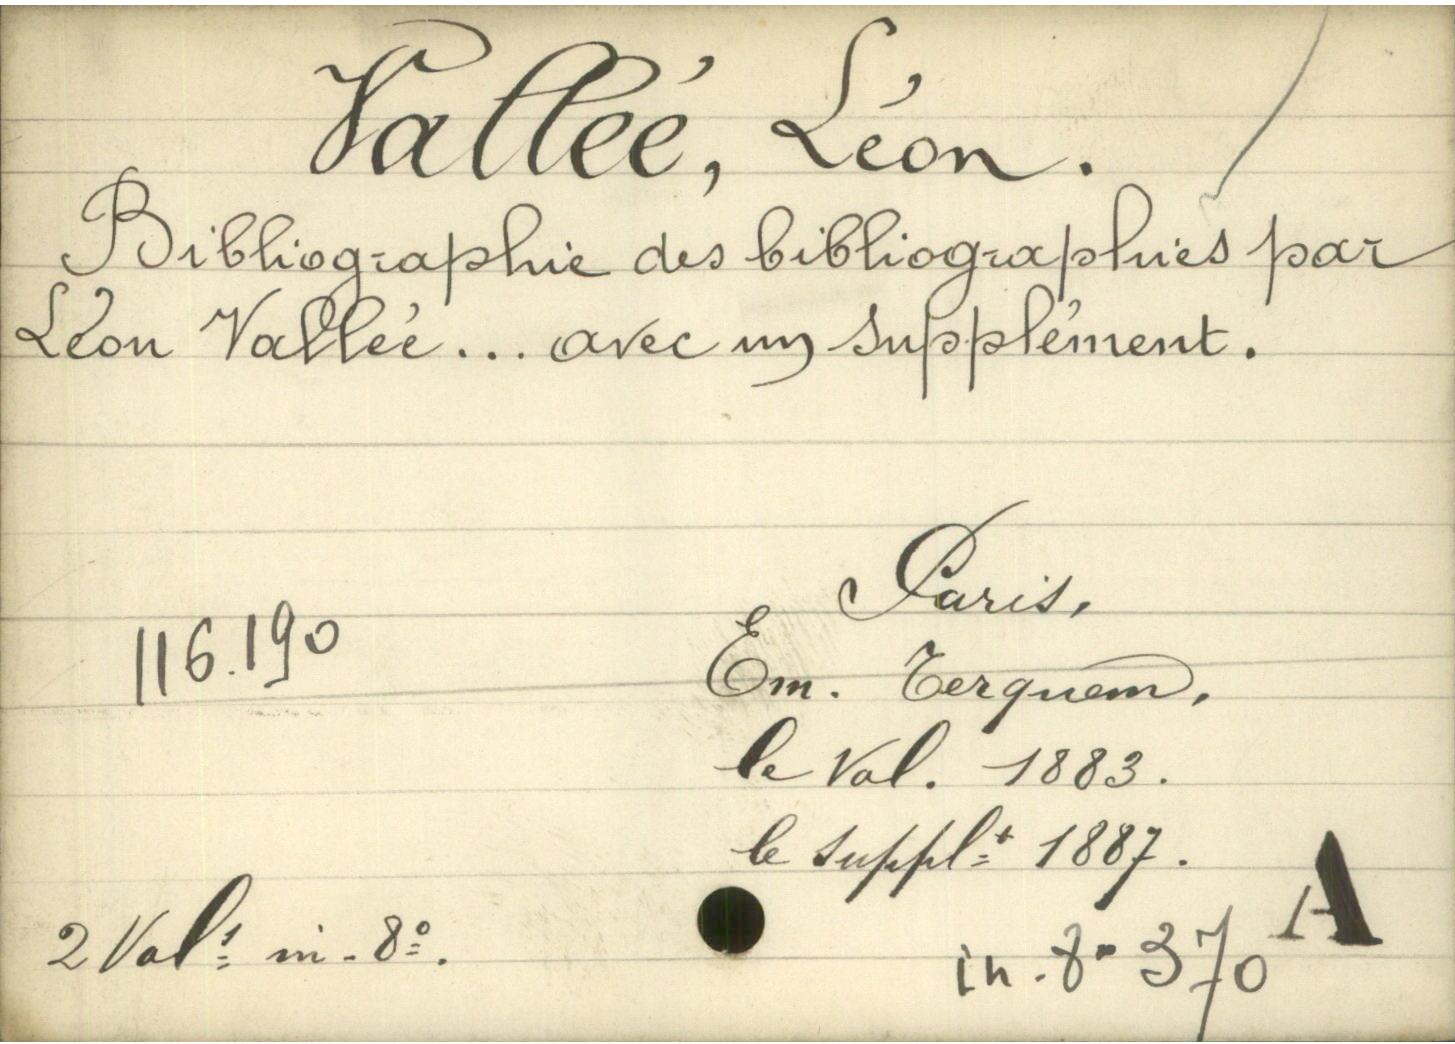 Vallée, Léon.
Bibliographie des bibliographies par
Léon Vallée... avec un supplément.
Paris,
116.190
Em. Terquem,
le Vol. 1883.
le suppl.t 1887.
2 Vol.s in-8º.
in-8º 370 A